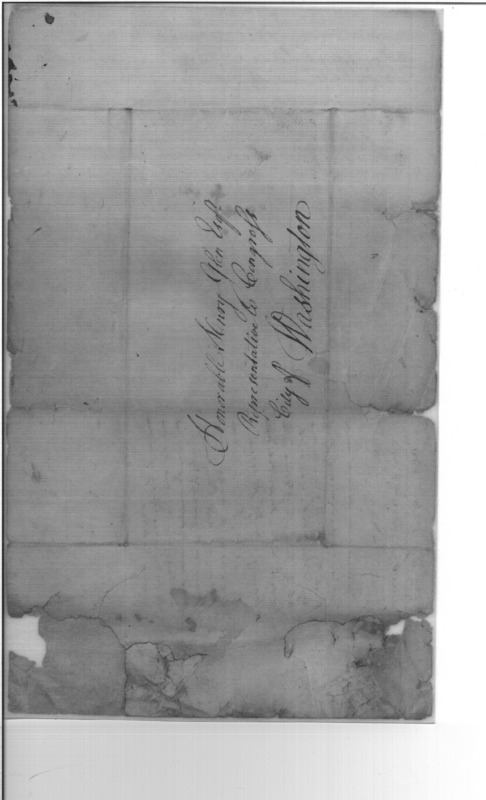 Honorable Henry Glen Esqr.
Representative to Congress
City of Washington